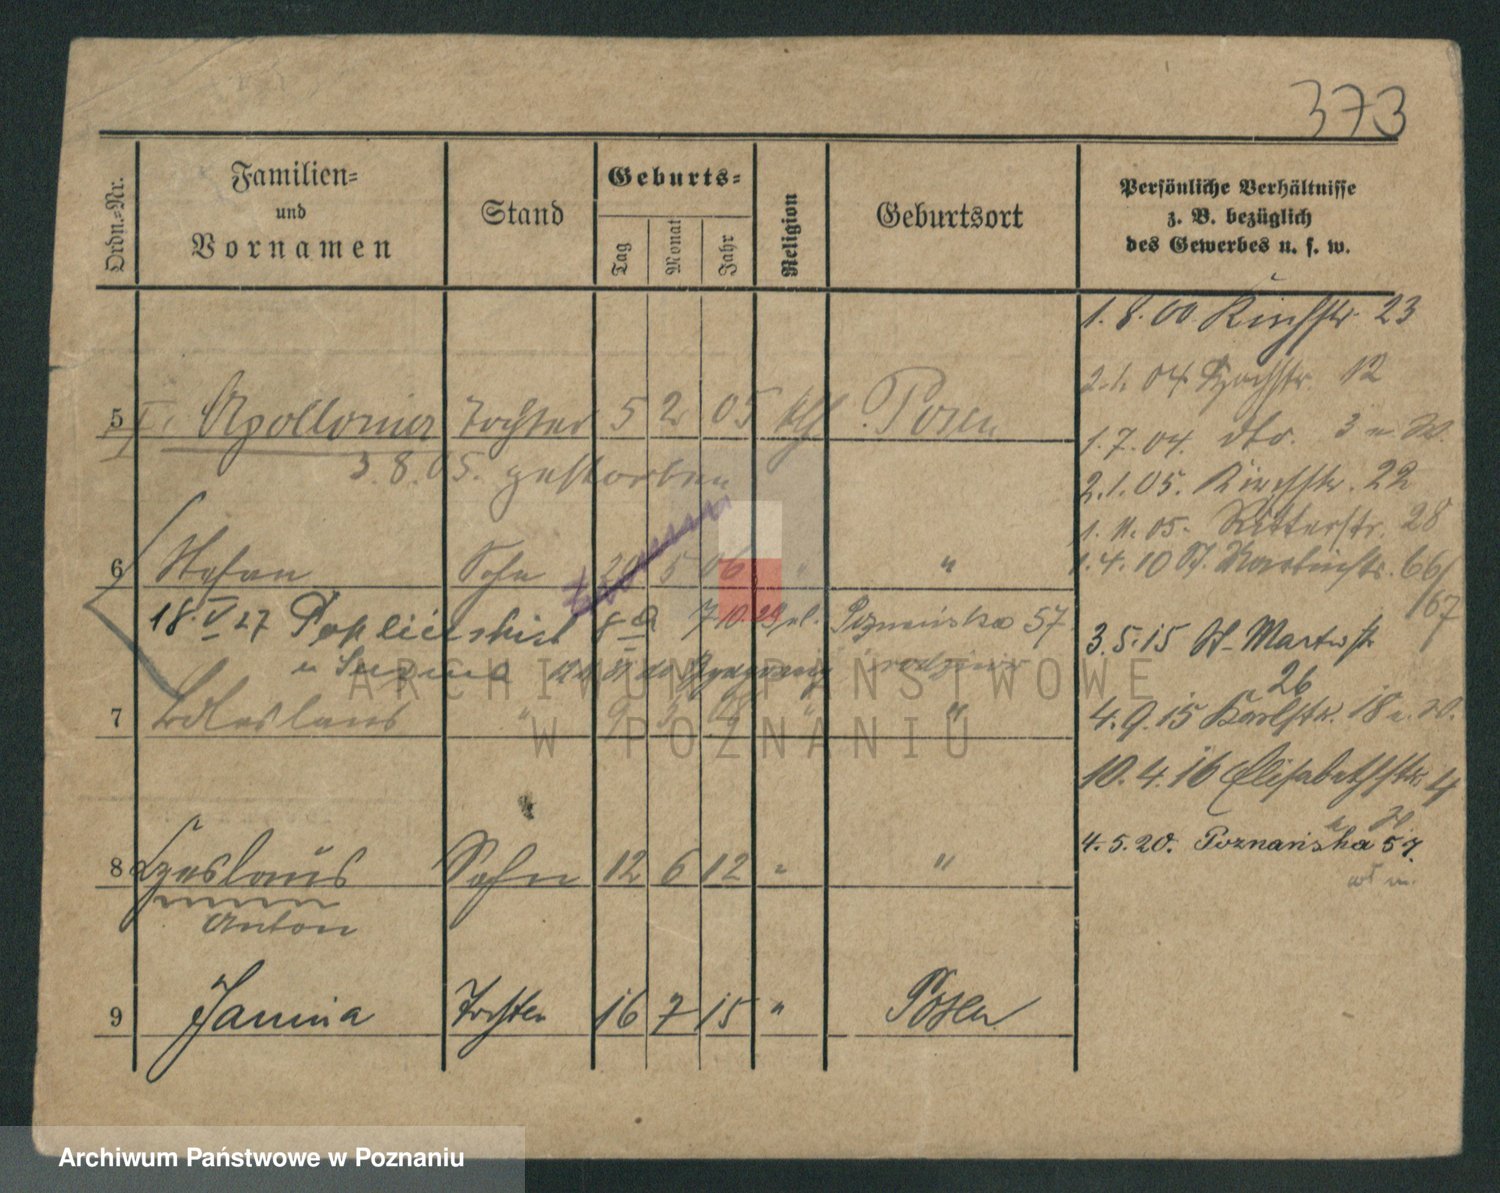 373
Ordn.-Nr.
Familien-
und
Vornamen
Stand
Geburts-
Tag
Monat
Jahr
Religion
Geburtsort
Persönliche Verhältnisse
z. B. bezüglich
des Gewerbes u. s. w.
1.8.00 Kirchstr. 23
2.1.04 12
5 Apollonia Tochter 5 2 05 kth Posen
1.7.04. dto. 3 u. W.
3.8.05. gestorben
2.1.05. Kirchstr. 22
1.11.05. Ritterstr. 28
6 Stefan Sohn 20 5 06 " "
1.4.10 St. Martinstr. 66/
67
18.V.27 Poznańska 57
3.5.15 St. Martinstr
26
7 " 9 3 08 " "
4.9.15 Karlstr. 18 u. W.
10.4.16 Elisabethstr. 4
4.5.20. Poznańska 57.
8 Czeslaus Sohn 12 6 12 " "
Anton
9 Janina Tochter 16 7 15 " Posen
ARCHIWUM PAŃSTWOWE
W POZNANIU
Archiwum Państwowe w Poznaniu